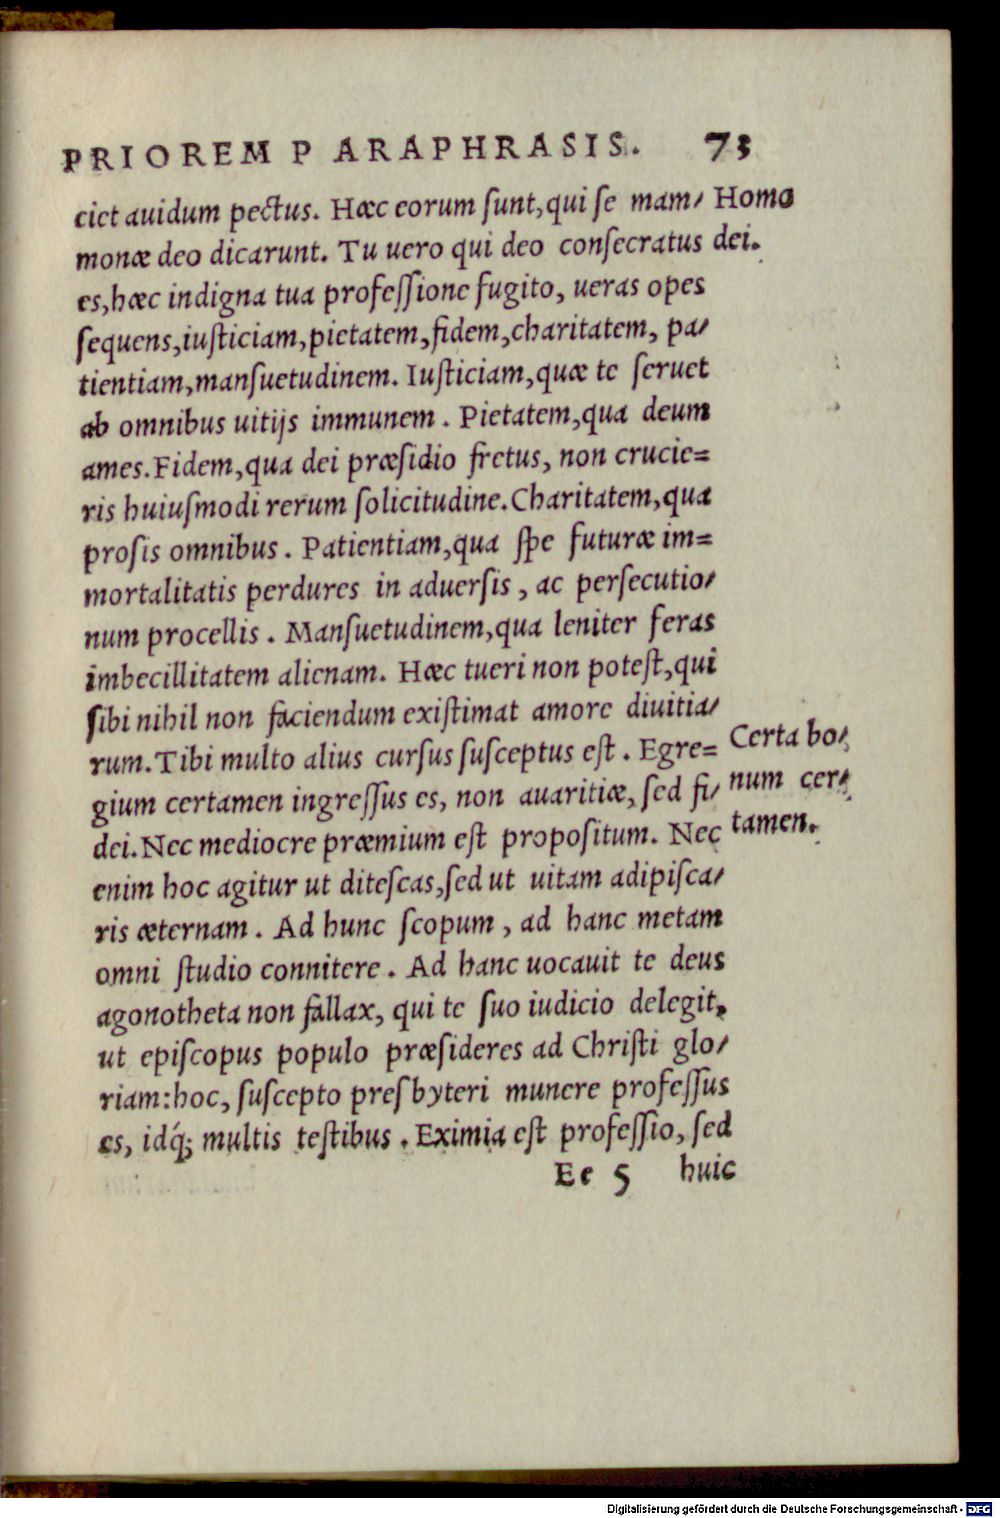 PRIOREM PARAPHRASIS. 73
ciet auidum pectus. Hæc eorum ſunt, qui ſe mam⸗ Homo
monæ deo dicarunt. Tu uero qui deo conſecratus dei.
es, hæc indigna tua profeſſione fugito, ueras opes
ſequens, iuſticiam, pietatem, fidem, charitatem, pa⸗
tientiam, manſuetudinem. Iuſticiam, quæ te ſeruet
ab omnibus uitijs immunem. Pietatem, qua deum
ames. Fidem, qua dei præſidio fretus, non crucie=
ris huiuſmodi rerum ſolicitudine. Charitatem, qua
proſis omnibus. Patientiam, qua ſpe futuræ im=
mortalitatis perdures in aduerſis, ac perſecutio⸗
num procellis. Manſuetudinem, qua leniter feras
imbecillitatem alienam. Hæc tueri non poteſt, qui
ſibi nihil non faciendum exiſtimat amore diuitia⸗
rum. Tibi multo alius curſus ſuſceptus eſt. Egre= Certa bo⸗
gium certamen ingreſſus es, non auaritiæ, ſed fi⸗ num cer⸗
dei. Nec mediocre præmium eſt propoſitum. Nec tamen.
enim hoc agitur ut diteſcas, ſed ut uitam adipiſca⸗
ris æternam. Ad hunc ſcopum, ad hanc metam
omni ſtudio connitere. Ad hanc uocauit te deus
agonotheta non fallax, qui te ſuo iudicio delegit,
ut epiſcopus populo præſideres ad Chriſti glo⸗
riam: hoc, ſuſcepto presbyteri munere profeſſus
es, idq́; multis teſtibus. Eximia eſt profeſſio, ſed
Ee 5 huic
Digitalisierung gefördert durch die Deutsche Forschungsgemeinschaft - DFG